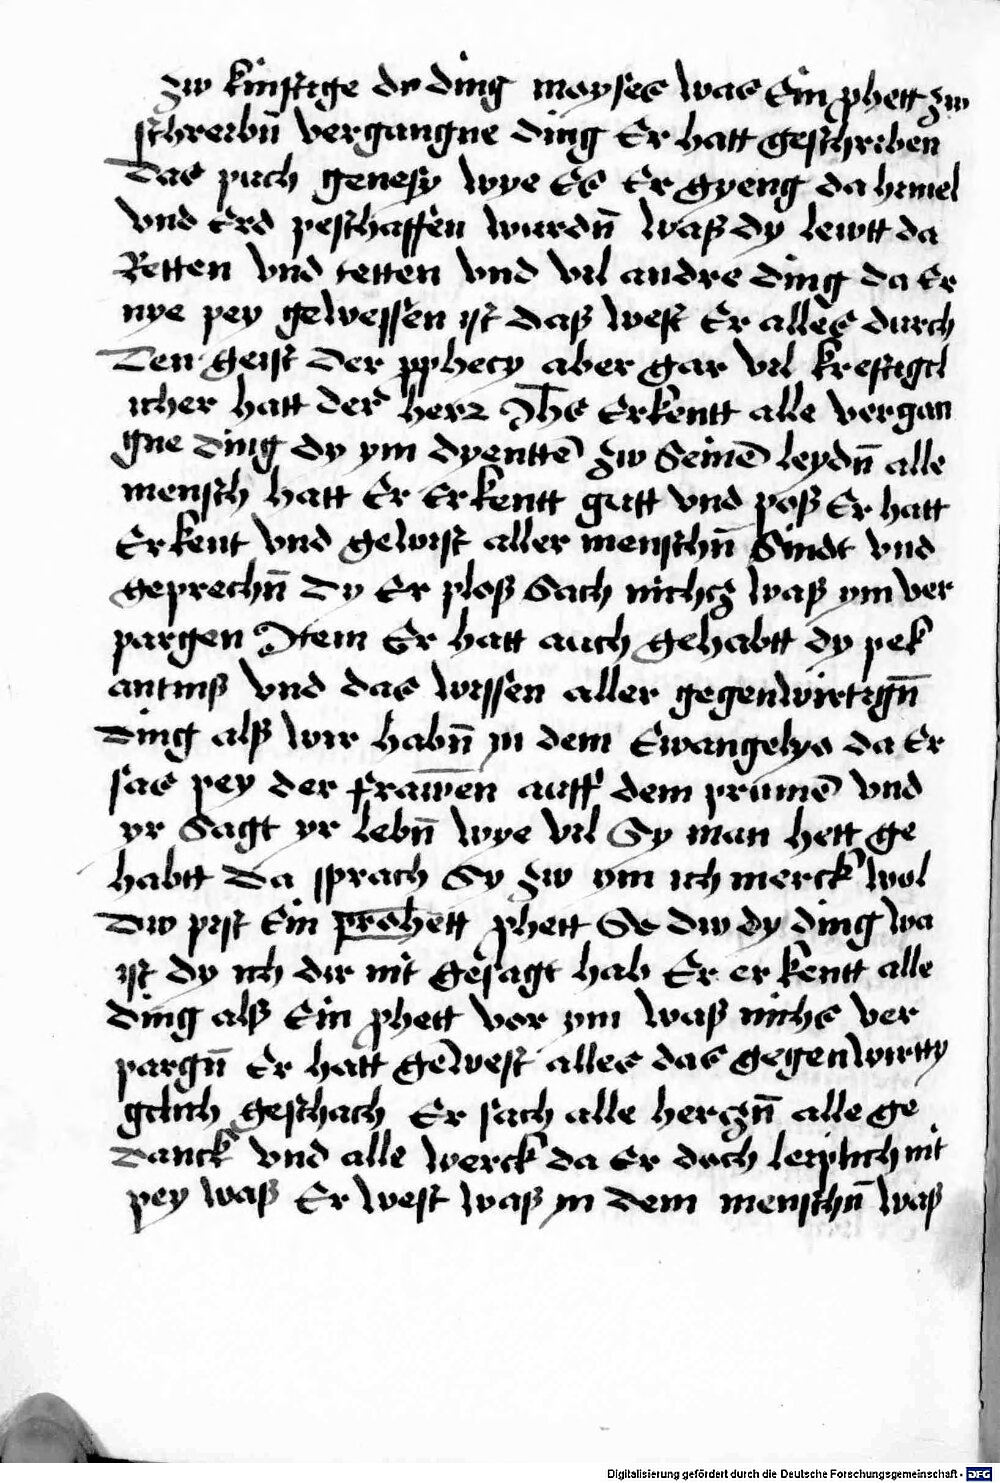 zw kinftige dy ding moyses was Ein phett zw
schreibn̄ vergangne ding Er hatt geschriben
Das puch genesy wye Es Er gyeng da himel
vnd Erd peschaffen wurdn̄ waß dy lewtt da
Retten vnd tetten vnd vil andre ding da Er
nye pey gewessen ist daß west Er alles durch
Den geist der pphecy aber gar vil kreftigcl
icher hatt der herr Jh̄s Erkentt alle vergan
gne ding dy ym dyenttē zw Seinē leydn̄ alle
mensch hatt Er Erkentt gutt vnd poß Er hatt
Erkent vnd gewist aller menschn̄ Sindt vnd
geprechn̄ Dy Er ploß Sach nichcz waß ym ver
pargen Item Er hatt auch gehabtt dy pek
antniß vnd das wissen aller gegenwirtign̄
Ding alß wir habn̄ yn dem Ewangelyo da Er
sas pey der frawēn auff dem prunnē vnd
yr Sagt yr lebn̄ wye vil Sy man hett ge
habtt Da sprach Sy zw ym ich merck wol
Dw pist Ein prohett phett Se dw dy ding wa
ist dy ich dir nit gesagt hab Er er kentt alle
ding alß Ein phett vor ym waß nichs ver
pargn̄ Er hatt gewest alles das gegenwirtty
gclich geschach Er sach alle herczn̄ alle ge
Danck vnd alle werck da Er doch leiplich nit
pey waß Er west waß yn dem menschn̄ waß
Digitalisierung gefördert durch die Deutsche Forschungsgemeinschaft - DFG